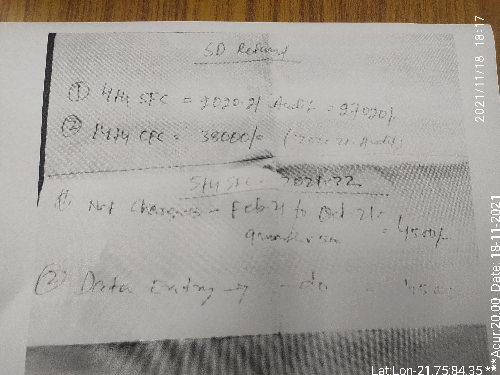 SD Refund
① 4th SFC = 2020-21 Audit = 27020/-
② 14th CFC = 38000/- (2020-21 Audit)
5th SFC - 2021-22
① Net Charges - Feb-21 to
= 4500/-
② Data Entry → - do
2021/11/18 18:17
Lat:Lon-21.75:84.35 ***Acur:20.00 Date: 18-11-2021